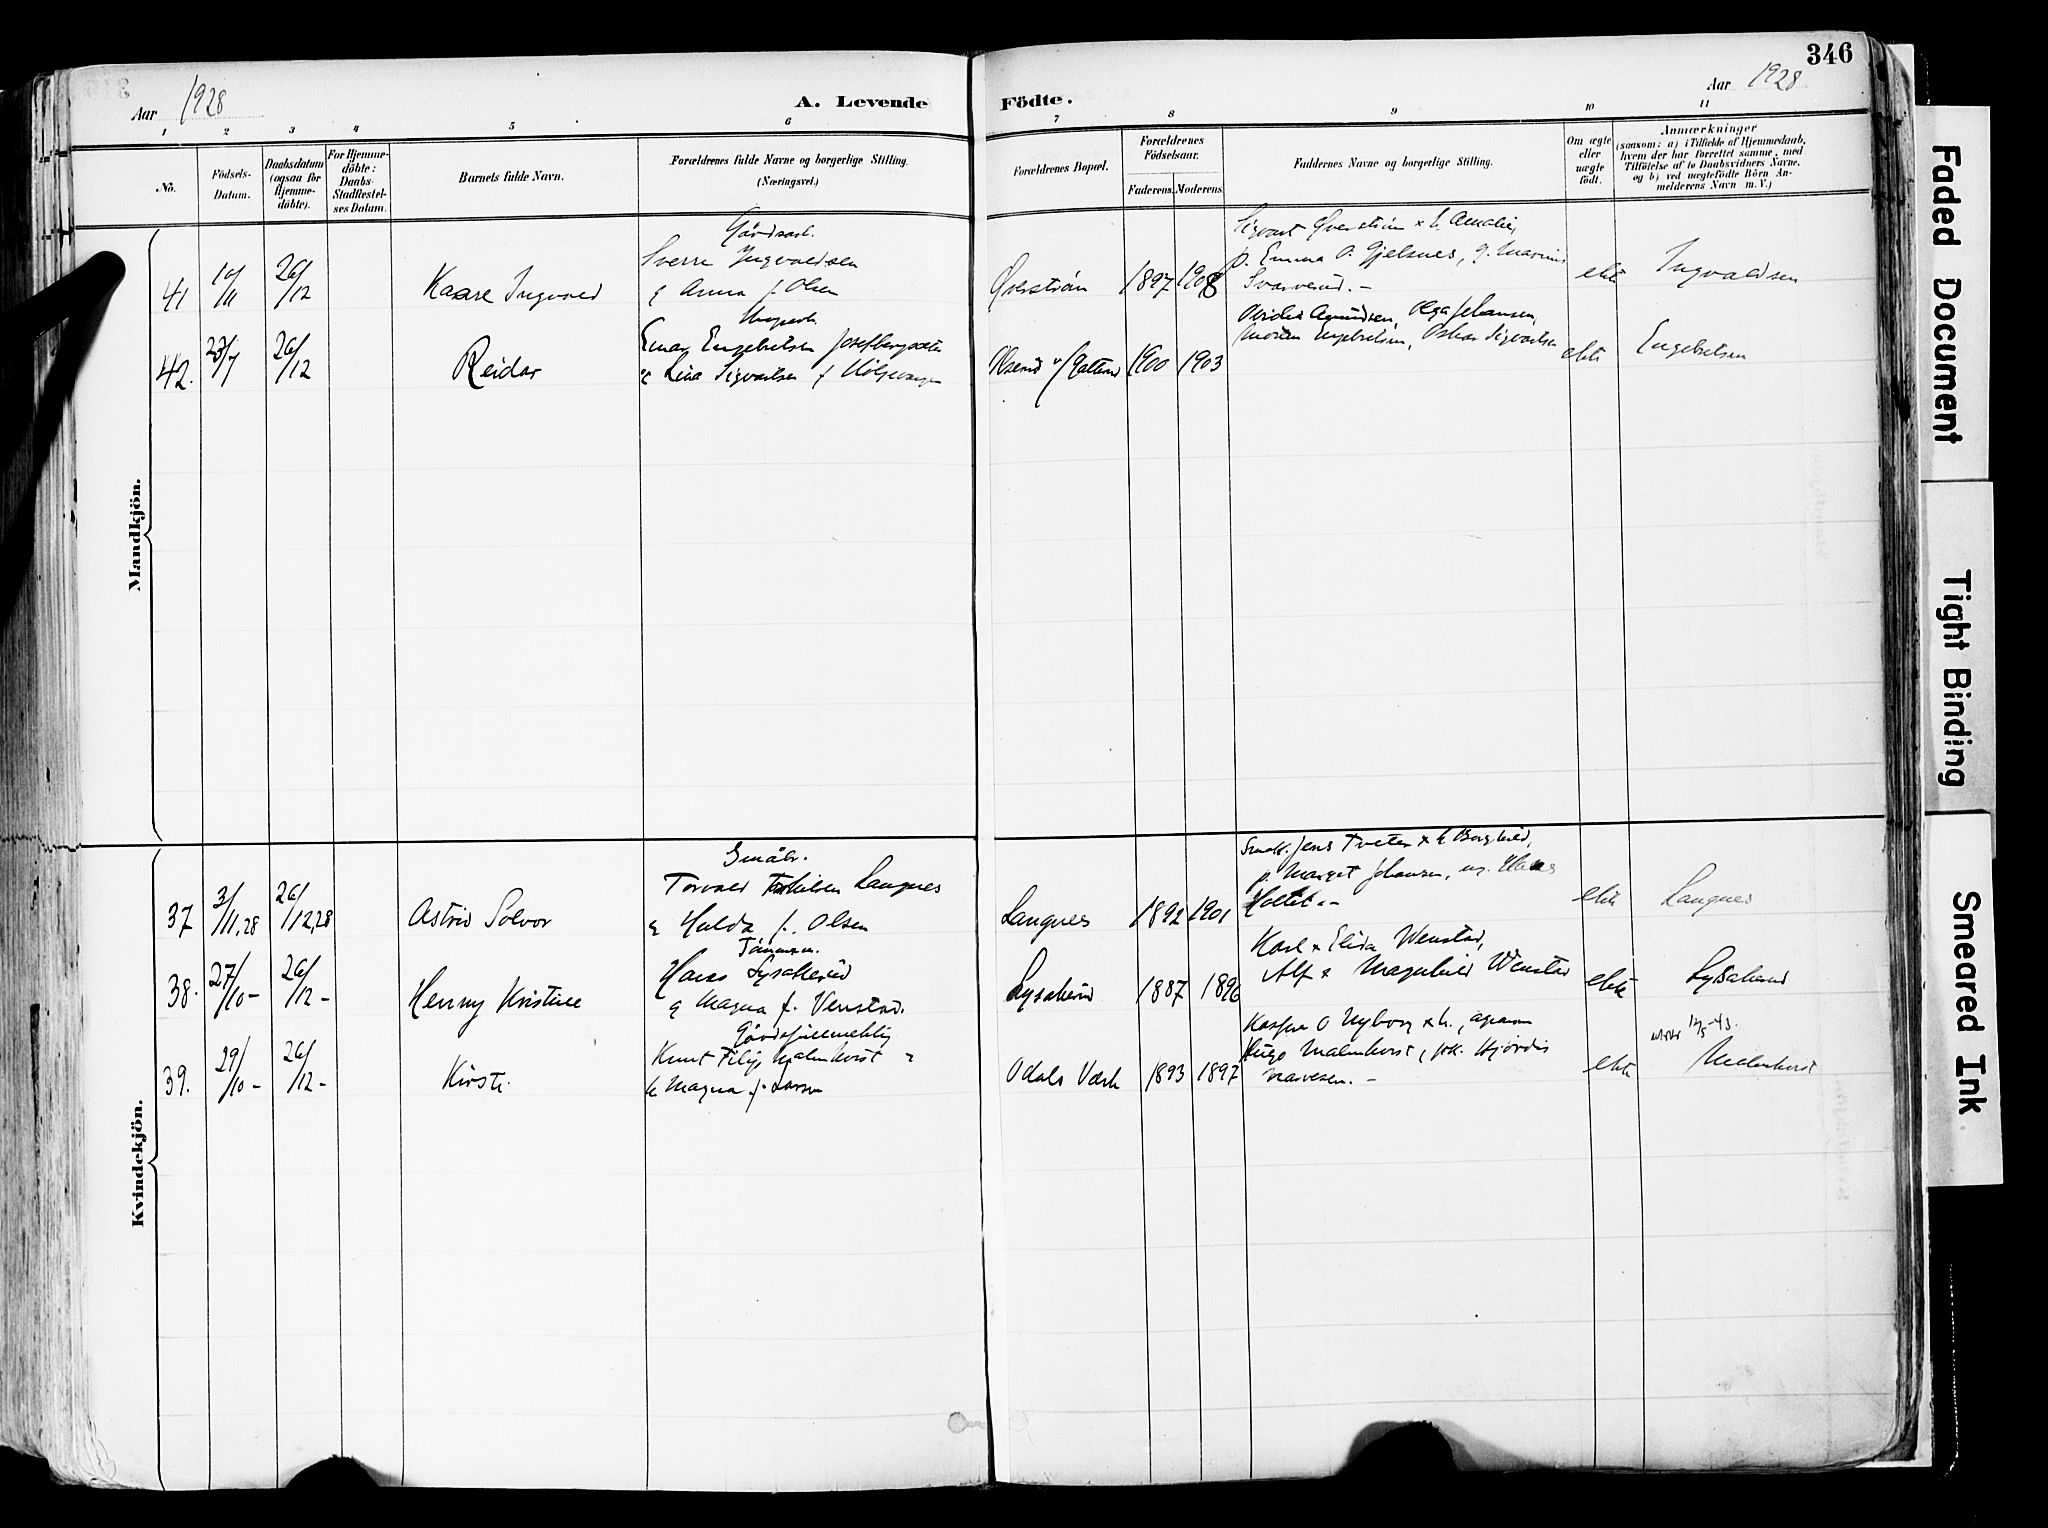 346
Aar 1928
A. Levende Födte.
Aar 1928.
1 2 3 4 5 6 7 8 9 10 11
No.
Födsels-
Datum.
Daabsdatum
(ogsaa for
Hjemme-
döbte).
For Hjemme-
döbte:
Daabs-
Stadfæstel-
ses Datum.
Barnets fulde Navn.
Forældrenes fulde Navne og borgerlige Stilling.
(Næringsvei.)
Forældrenes Bopæl.
Forældrenes
Födselsaar.
Faderens. Moderens.
Faddernes Navne og borgerlige Stilling.
Om ægte
eller
uægte
født.
Anmærkninger
(saasom: a) i Tilfælde af Hjemmedaab,
hvem der har forrettet samme, med
Tilföielse af to Daabsvidners Navne,
og b) ved uægtefödte Börn An-
melderens Navn m. V.)
Mandkjön.
41
10/11
26/12
Kaare Ingvald
Gårdsarb.
Sverre Ingvaldsen
& Anna f. Olsen
Øverström
1897
1908
Sigvart Øverström & h. Amalie,
p. Emma O. Gjelsnes, g.
Svarverud. -
ekte
Ingvaldsen
42.
23/7
26/12
Reidar
Einar Engebretsen
& Lina Sigvartsen f.
1900
1903
Agmundsen, Olga Johansen,
Engebretsen, Oskar Sigvartsen
ekte
Engebretsen
Kvindekjön.
37
3/11,28
26/12,28
Astrid Solvor
Småbr.
Torvald Langnes
& Hulda f. Olsen
Langnes
1892
1901
Jens Tveter & h. Borghild,
p. Margot Johansen,
Holtet. -
ekte
Langnes
38.
27/10 -
26/12 -
Henny Kristine
Tömmerm.
Hans Lysakerud
& Magna f. Venstad.
Lysakerud
1887
1896
Karl & Elida Wenstad,
Alf & Magnhild Wenstad
ekte
Lysakerud
39.
29/10 -
26/12 -
Kirsti.
Knut Filip Malmkvist &
h. Magna f. Larsen
Odals Værk
1893
1897
Kasper O Nyborg & h.,
Hugo Malmkvist, frk. Hjördis
Narvesen. -
ekte
12/5-43.
Malmkvist
Faded Document
Tight Binding
Smeared Ink